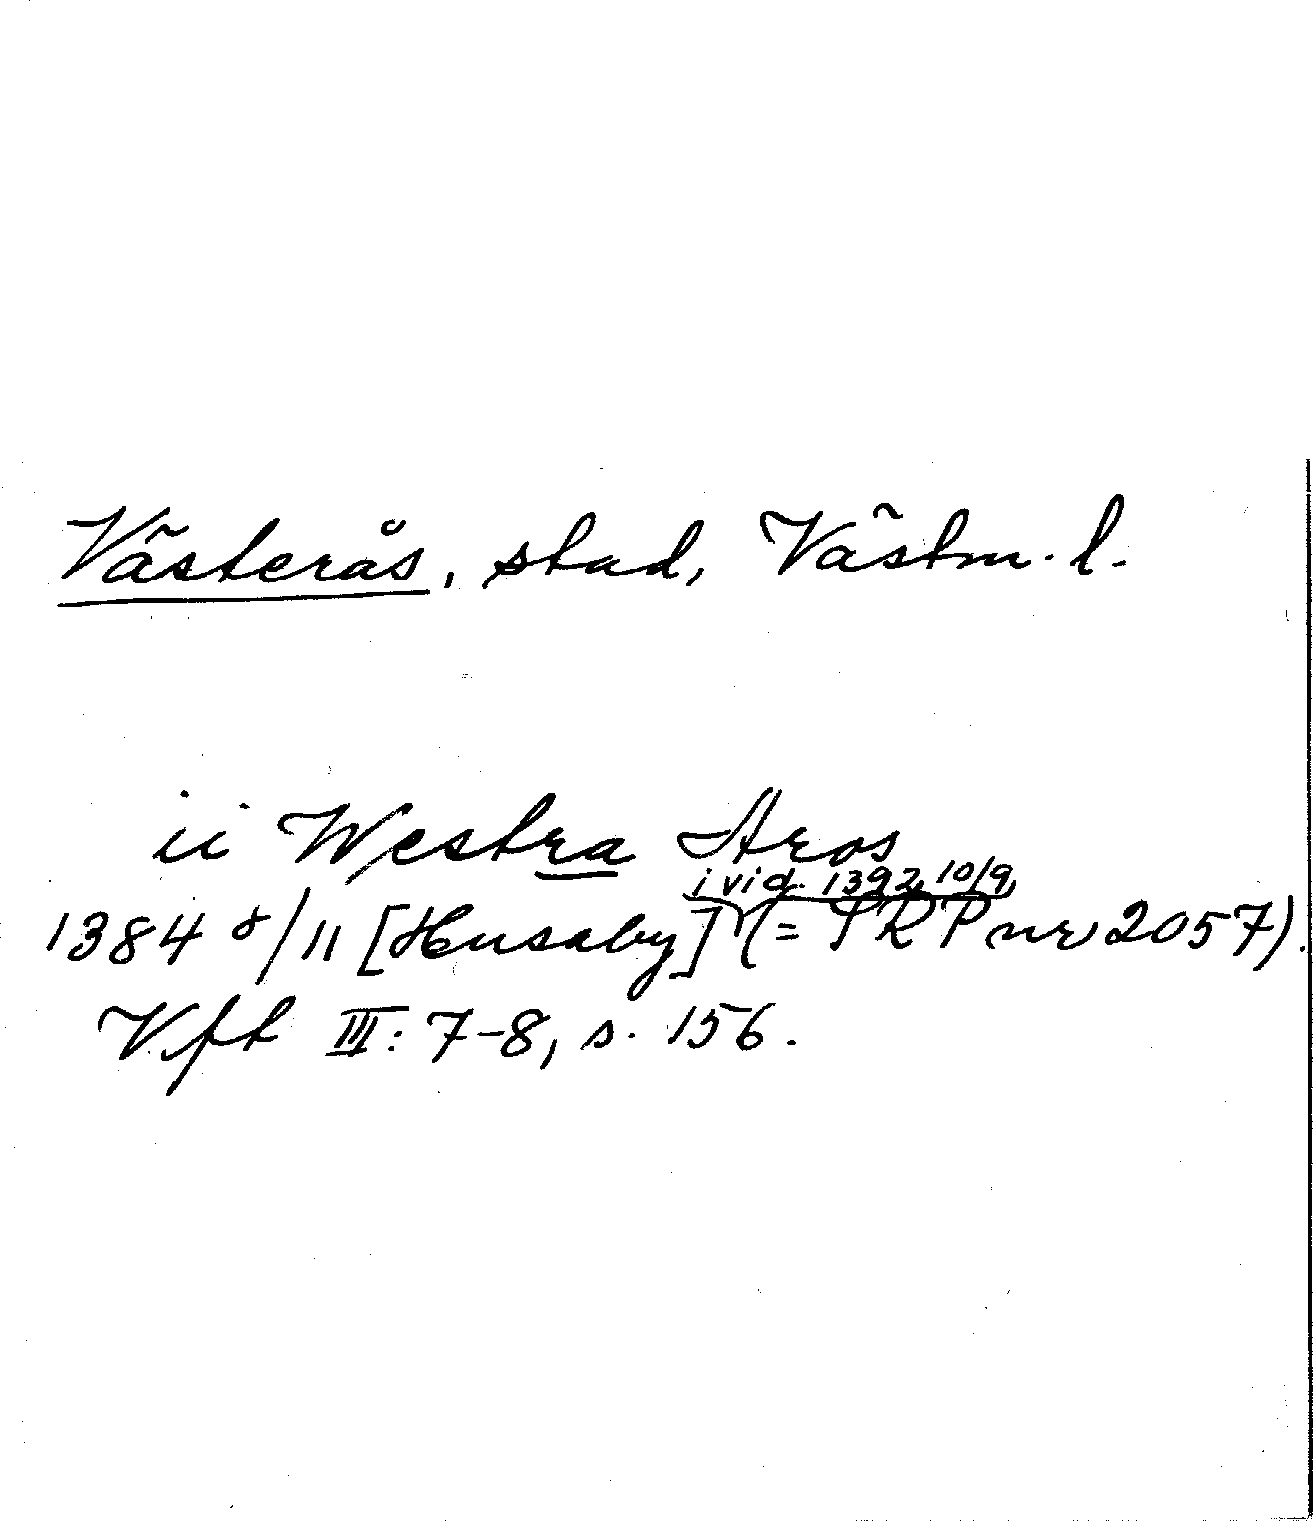 Västerås, stad, Västm. l.
ii Westra Aros
i vid. 1392 10/9,
1384 8/11 [Husaby] (= SRP nr 2057).
Vft III: 7-8, s. 156.